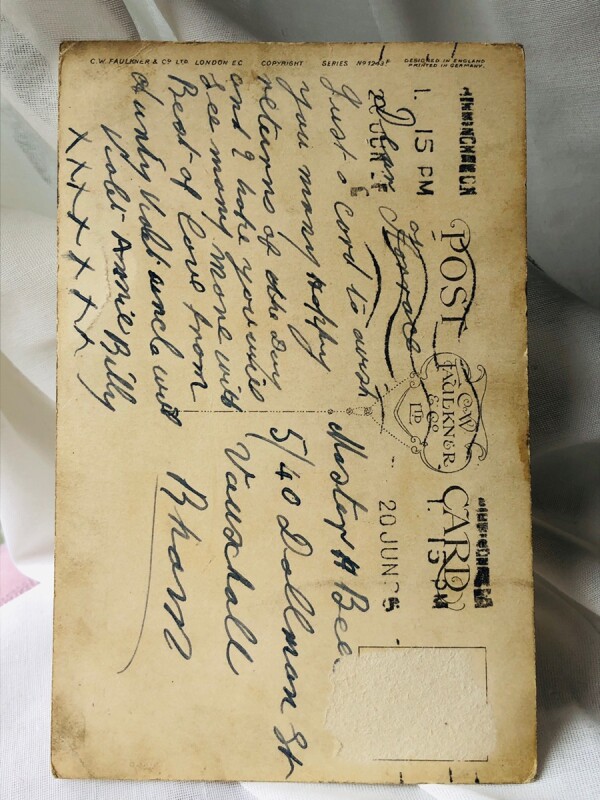 C.W. FAULKNER & Co LTD. LONDON E.C. COPYRIGHT SERIES No 1243F DESIGNED IN ENGLAND
PRINTED IN GERMANY.
POST CARD
C.W.
FAULKNER
& Co
LTD.
BIRMINGHAM
1. 15 PM
20 JUN
1. 15 PM
20 JUN
Dear Horace
Just a card to wish
you many Happy
returns of the Day
and I hope you will
see many more with
Best of love from
Aunty Violet uncle will
Violet Annie Billy
X X X X X X X
Master H Bee
5/40 Dollman St
Vauxhall
Bham